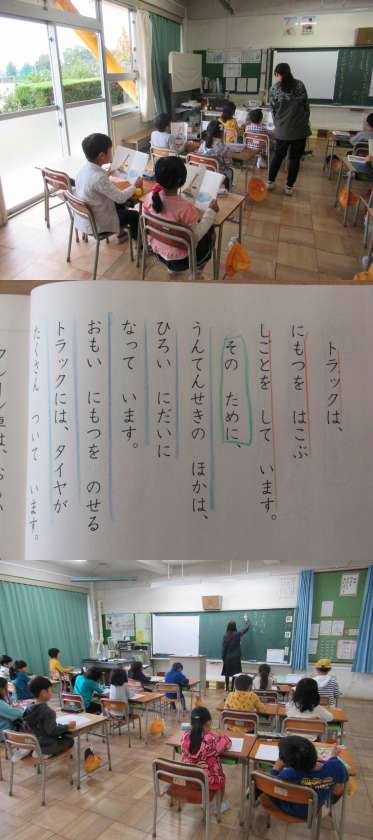 トラックは、
にもつを はこぶ
しごとを して います。
その ために、
うんてんせきの ほかは、
ひろい にだいに
なって います。
おもい にもつを のせる
トラックには、タイヤが
たくさん ついて います。